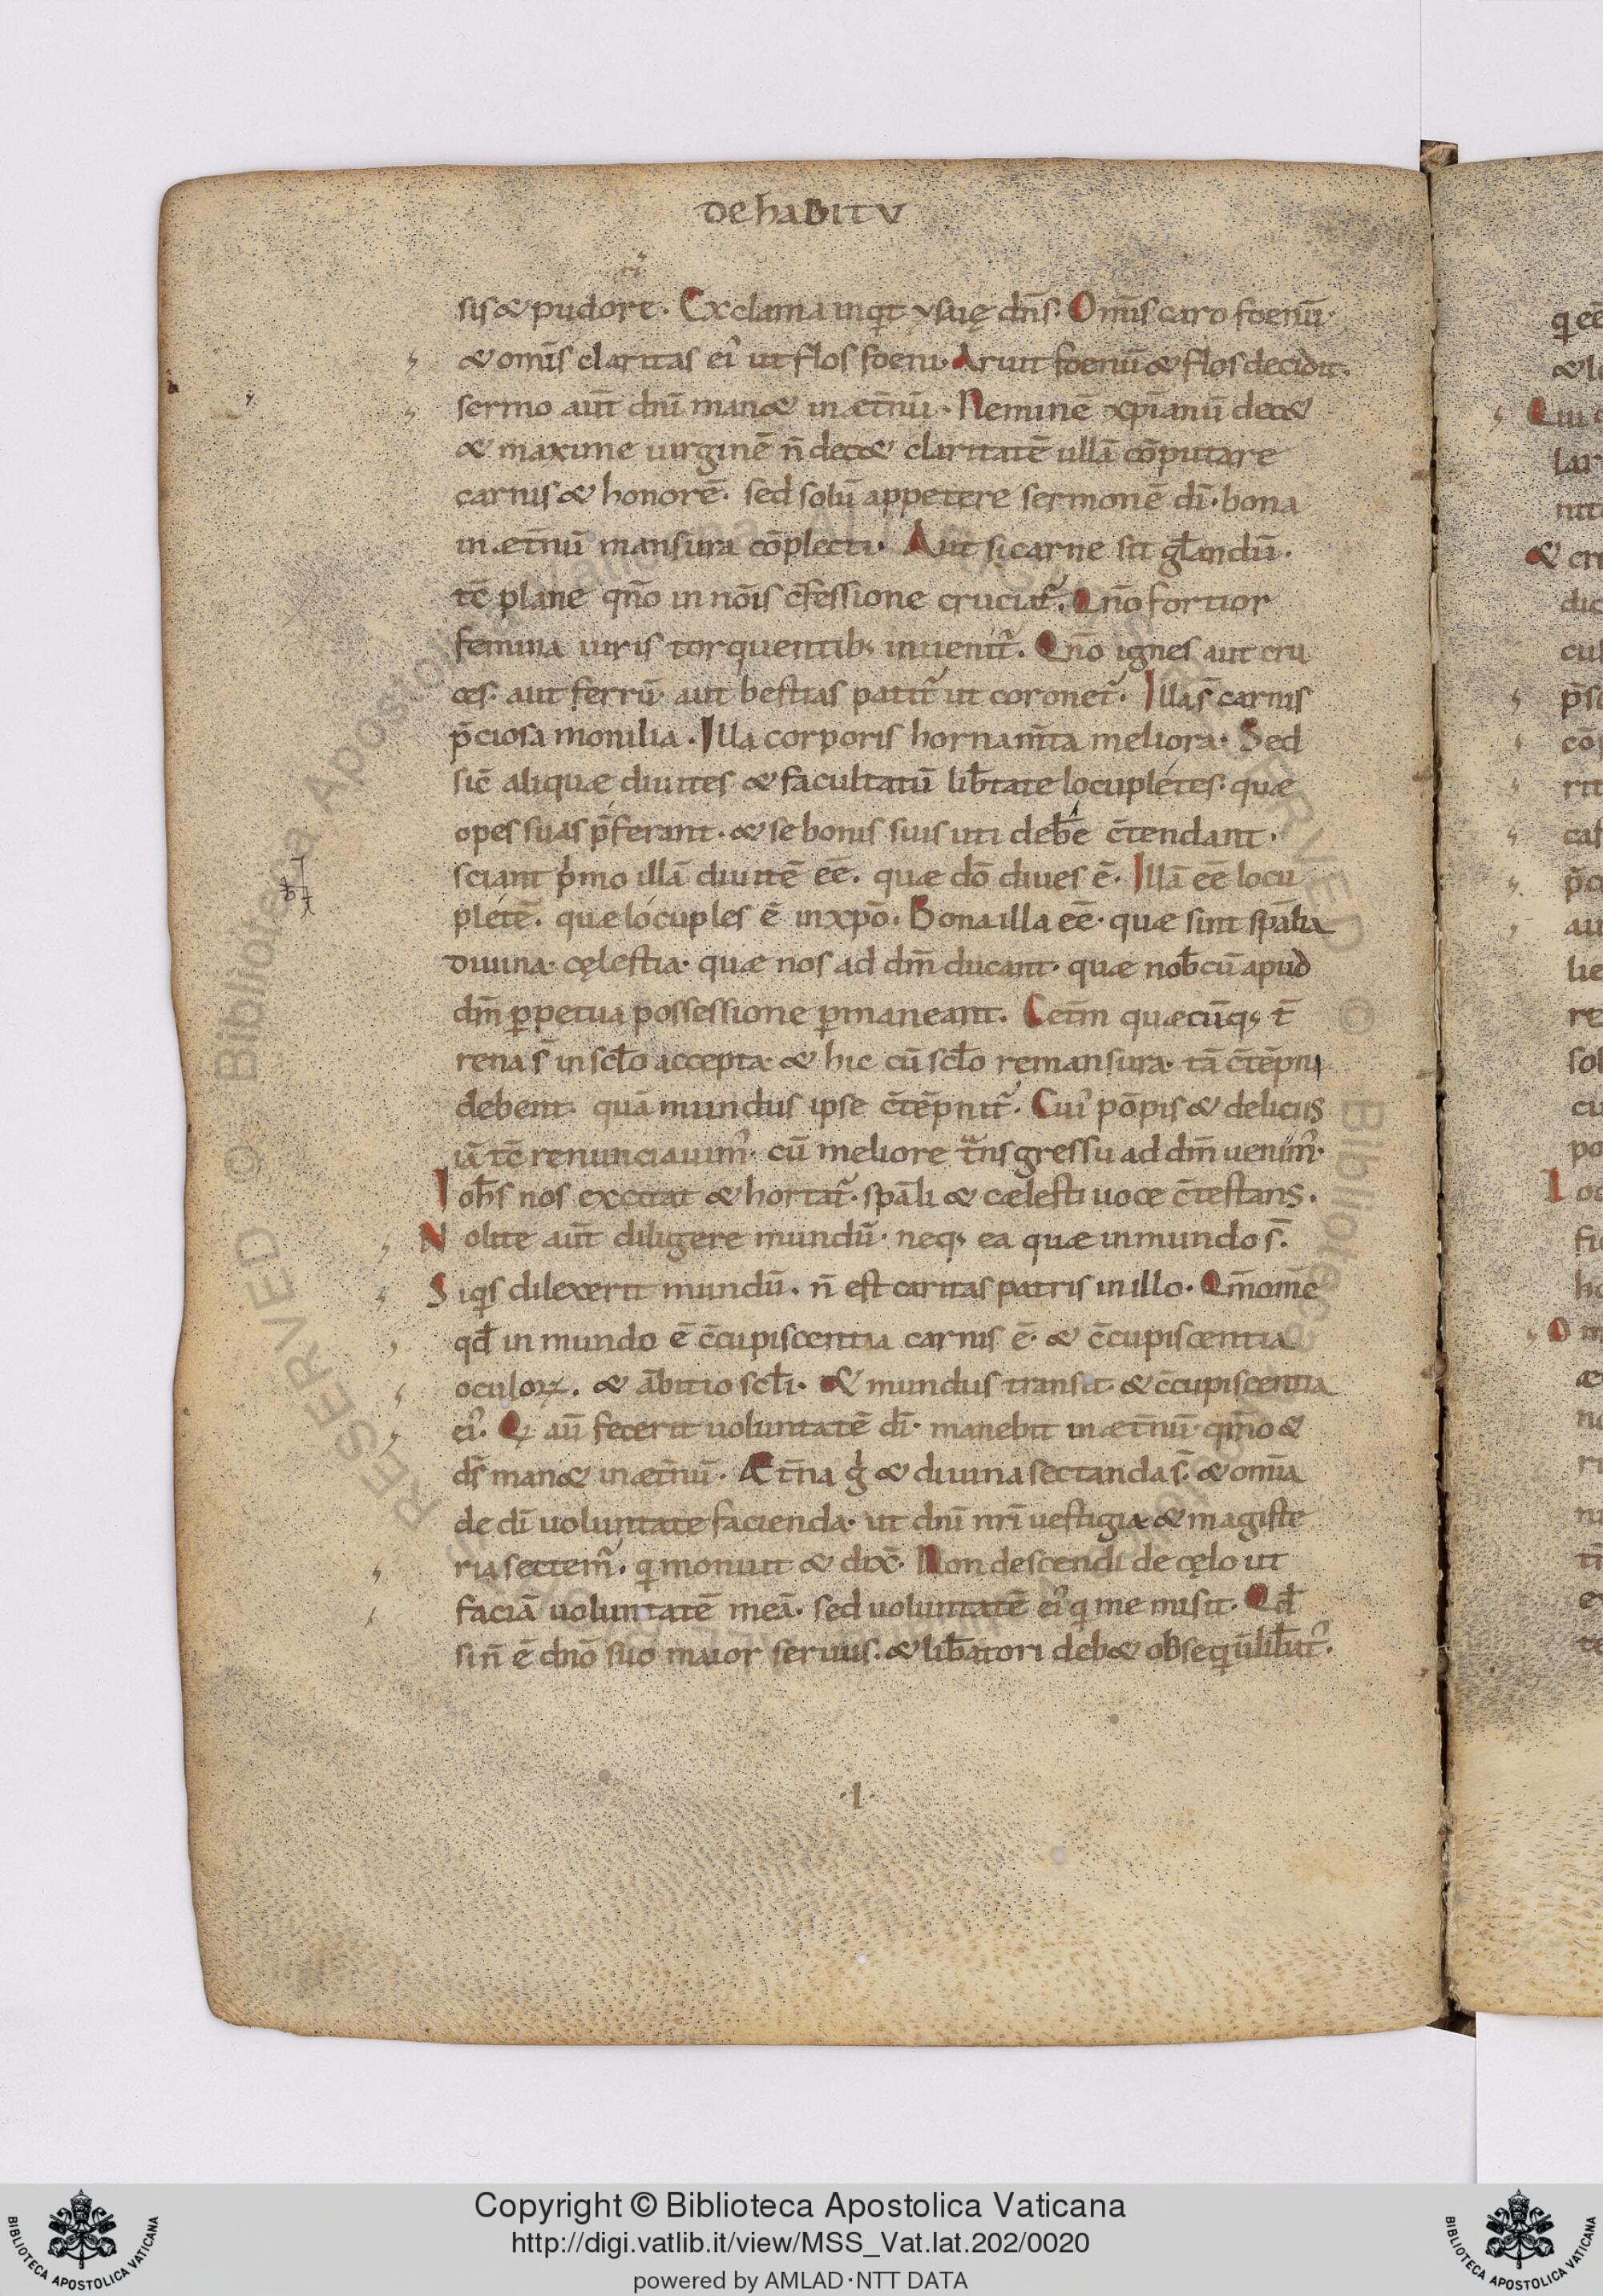 de habitu
sis & pudore. Exclama inqͥt ysaię dn̄s. Om̄is caro foenū.
& om̄is claritas ei᾿ ut flos foeni. Aruit foenū & flos decidit.
sermo aut̄ dn̄i man& in æt̄nū. Neminē xp̄ianū dec&
& maxime uirginē n̄ dec& claritatē ullā cōputare
carnis & honorē. sed solū appetere sermonē dī. bona
in æt̄nū mansura cōplecti. Aut si carne sit gl̄andū.
tc̄ plane qn̄o in nōis c̄fessione cruciat᾿. Qn̄o fortior
femina uiris torquentib; inuenit᾿. Qn̄o ignes aut cru
ces. aut ferrū. aut bestias patit᾿ ut coronet᾿. Illa s̄ carnis
p̄ciosa monilia. Illa corporis hornam̄ta meliora. Sed
sic̄ aliquæ diuites & facultatū lib̄tate locupletes. quæ
opes suas p̄ferant. & se bonis suis uti deb̄e c̄tendant.
sciant pͥmo illā diuitē eē. quæ dō diues ē. Illā eē locu
pletē. quæ locuples ē in xp̄o. Bona illa eē. quæ sint sp̄alia
diuina. cęlestia. quæ nos ad dm̄ ducant. quæ nob̄cū apud
dm̄ ꝑpetua possessione ꝑmaneant. Cet̄m quæcūq; t̄
rena s̄ in scl̄o accepta. & hic cū scl̄o remansura. tā c̄tēpni
debent. quā mundus ipse c̄tēpnit᾿. Cui᾿ pōpis & deliciis
iā tc̄ renunciauim᾿. cū meliore tᷓnsgressu ad dm̄ uenim᾿.
Ioh̄s nos excitat & hortat᾿. sp̄ali & cælesti uoce c̄testans.
Nolite aut̄ diligere mundū. neq; ea quæ in mundo s̄.
Siqͥs dilexerit mundū. n̄ est caritas patris in illo. Qm̄ om̄e
qd̄ in mundo ē c̄cupiscentia carnis ē. & c̄cupiscentia
oculoꝝ. & ābitio scl̄i. & mundus transit. & c̄cupiscentia
ei᾿. Qͥ aū fecerit uoluntatē dī. manebit in æt̄nū. qm̄o &
ds̄ man& in æt̄nū. Æt̄na gͦ & diuina sectanda s̄. & om̄ia
de dī uoluntate facienda. ut dn̄i nr̄i uestigia & magiste
ria sectem᾿. qͥ monuit & dix̄. Non descendi de cęlo ut
faciā uoluntatē meā. sed uoluntatē ei᾿ qͥ me misit. Qd̄
si n̄ ē dn̄o suo maior seruus. & lib̄atori deb& obseqͥū lib̄at᾿.
.I.
Copyright © Biblioteca Apostolica Vaticana
http://digi.vatlib.it/view/MSS_Vat.lat.202/0020
powered by AMLAD·NTT DATA
BIBLIOTECA APOSTOLICA VATICANA
BIBLIOTECA APOSTOLICA VATICANA